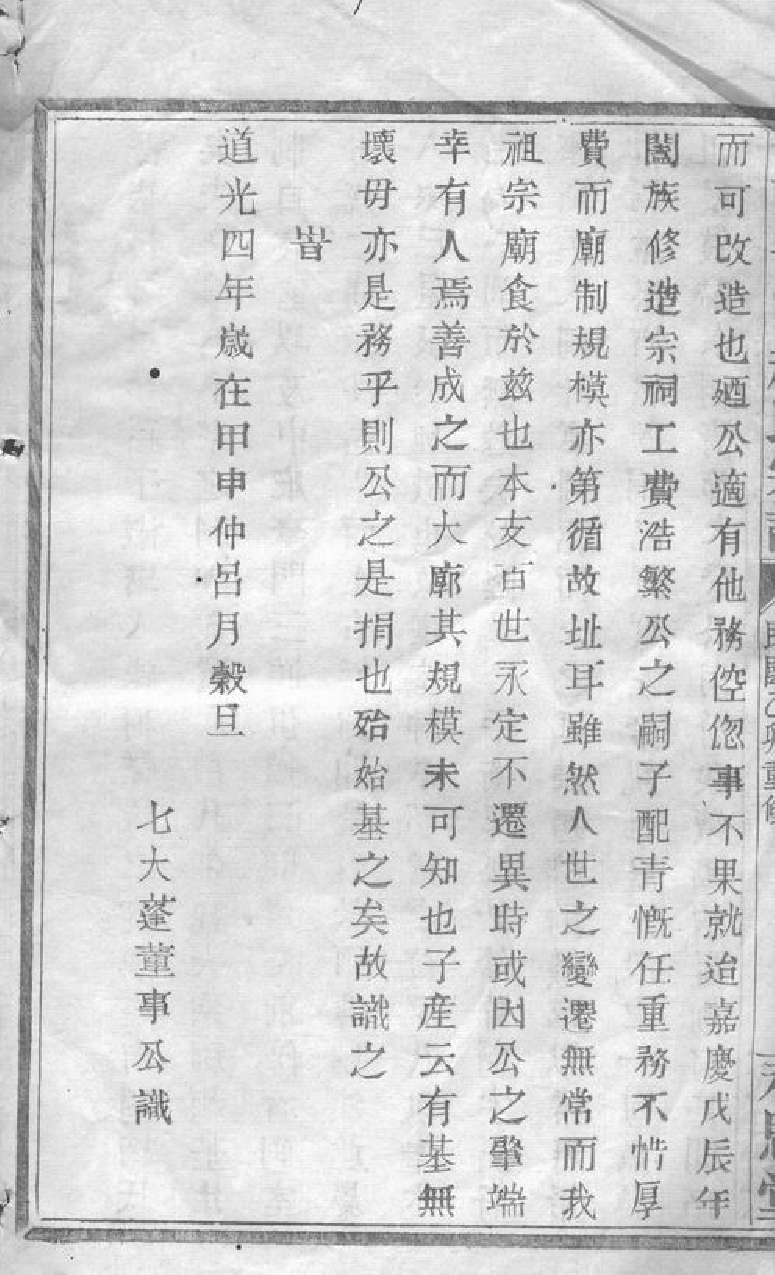 而可改造也廼公適有他務倥偬事不果就迨嘉慶戊辰年
闔族修造宗祠工費浩繁公之嗣子配青慨任重務不惜厚
費而廟制規模亦第循故址耳雖然人世之變遷無常而我
祖宗廟食於兹也本支百世永定不遷異時或因公之肇端
幸有人焉善成之而大廓其規模未可知也子產云有基無
壞毋亦是務乎則公之是捐也殆始基之矣故識之
旹
道光四年歲在甲申仲呂月穀旦
七大蓬董事公識